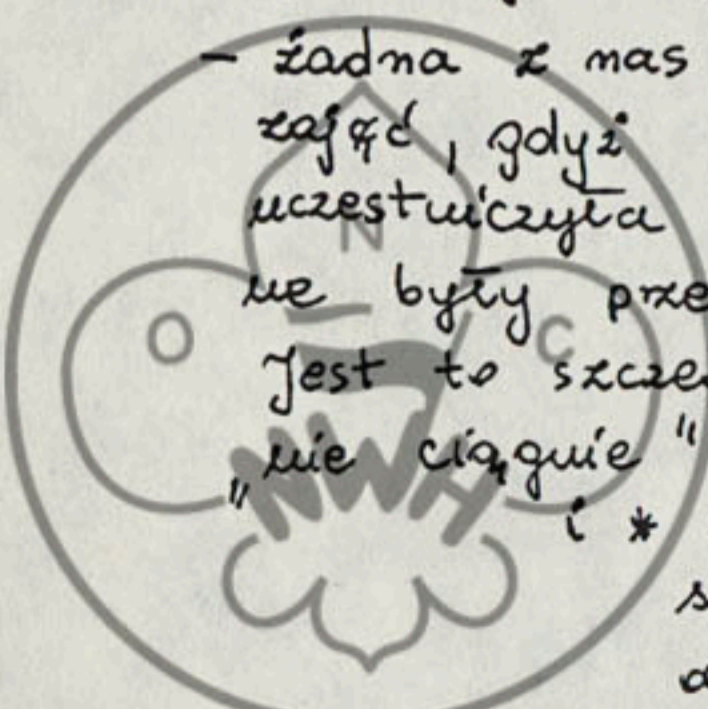 - żadna z nas
zajęć, gdyż
uczestniczyła
ne były prze
Jest to szcze
„nie ciągnie"
i *
s
O N C
7
NWH